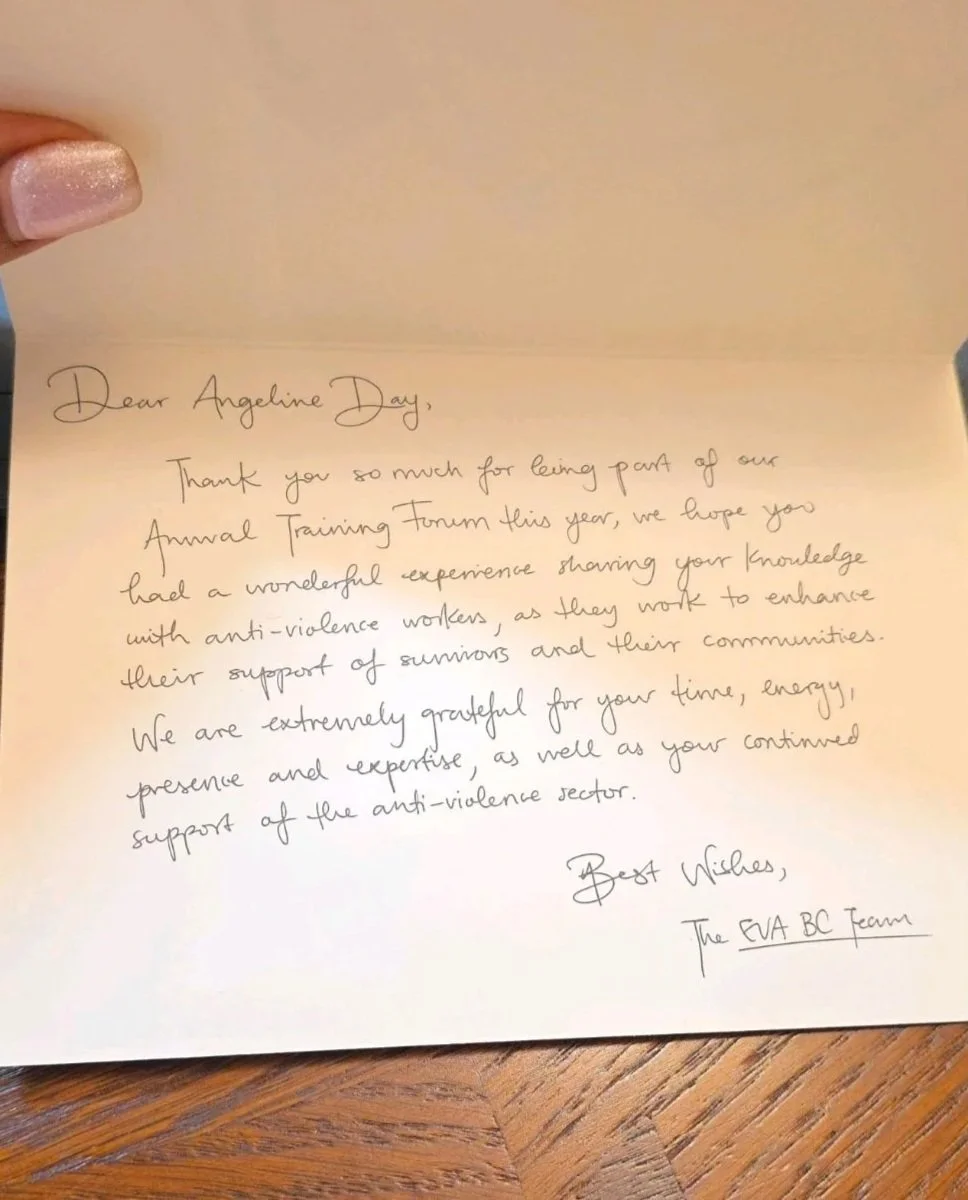 Dear Angeline Day,
Thank you so much for being part of our
Annual Training Forum this year, we hope you
had a wonderful experience sharing your knowledge
with anti-violence workers, as they work to enhance
their support of survivors and their communities.
We are extremely grateful for your time, energy,
presence and expertise, as well as your continued
support of the anti-violence sector.
Best Wishes,
The EVA BC Team